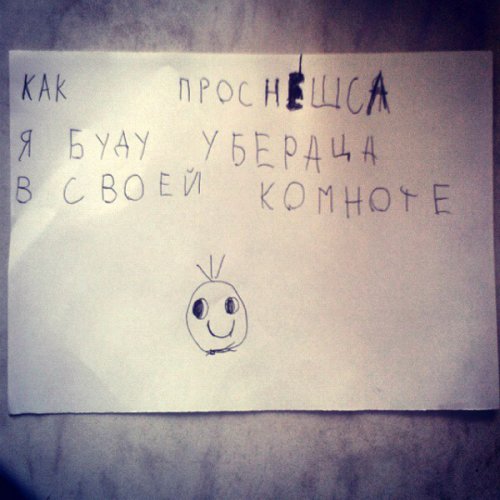 КАК ПРОСНЁШСА
Я БУДУ УБЕРАЦА
В СВОЕЙ КОМНОТЕ